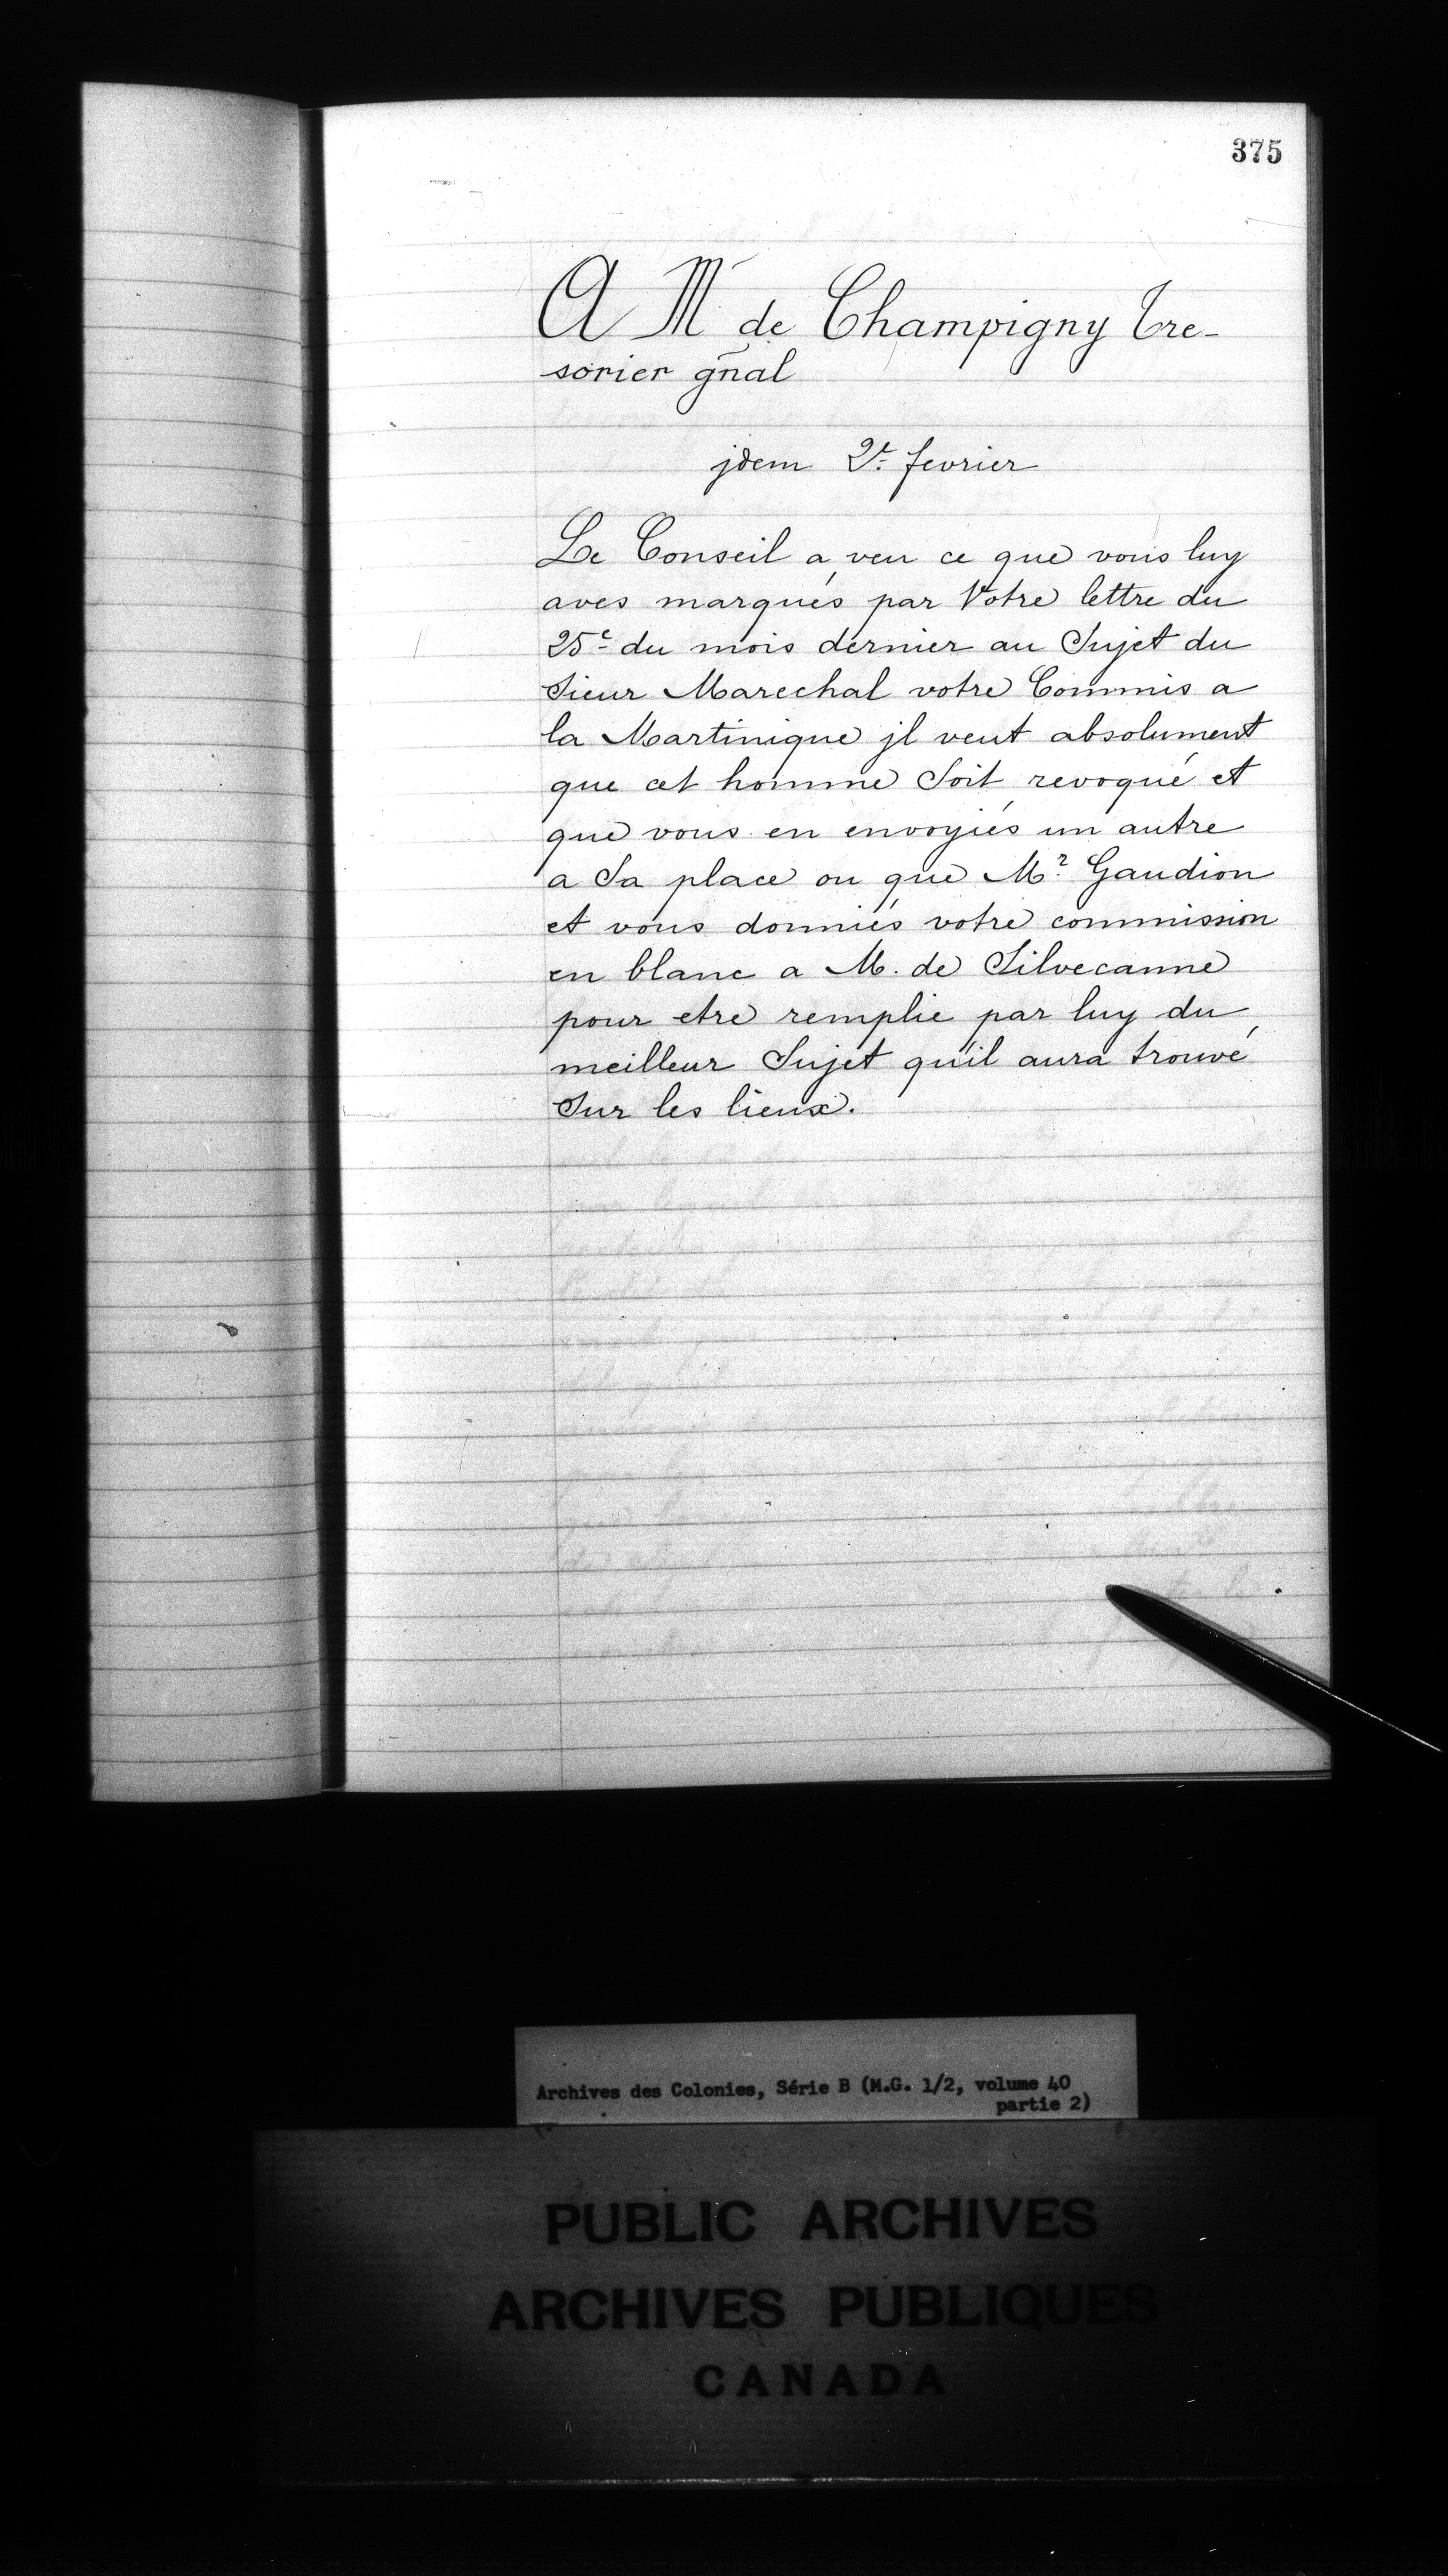 375
A Mr de Champigny tre-
sorier gñal
jdem 2e fevrier
Le Conseil a veu ce que vous luy
aves marqués par Votre lettre du
25e du mois dernier au Sujet du
Sieur Marechal votre Commis a
la Martinique jl veut absolument
que cet homme Soit revoqué et
que vous en envoyiés un autre
a Sa place ou que Mr Gaudion
et vous donniés votre commission
en blanc a M. de Silvecanne
pour etre remplie par luy du
meilleur Sujet qu'il aura trouvé
Sur les lieux.
Archives des Colonies, Série B (M.G. 1/2, volume 40
partie 2)
PUBLIC ARCHIVES
ARCHIVES PUBLIQUES
CANADA